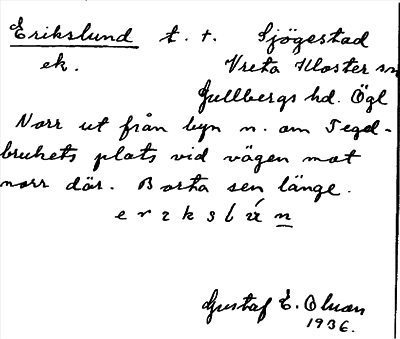 Erikslund t. t. Sjögestad
ek. Vreta Kloster sn
Gullbergs hd. Ögl
Norr ut från byn n. om Tegel-
brukets plats vid vägen mot
norr där. Borta sen länge.
e r i k s l u n
Gustaf E. Oluan
1936.